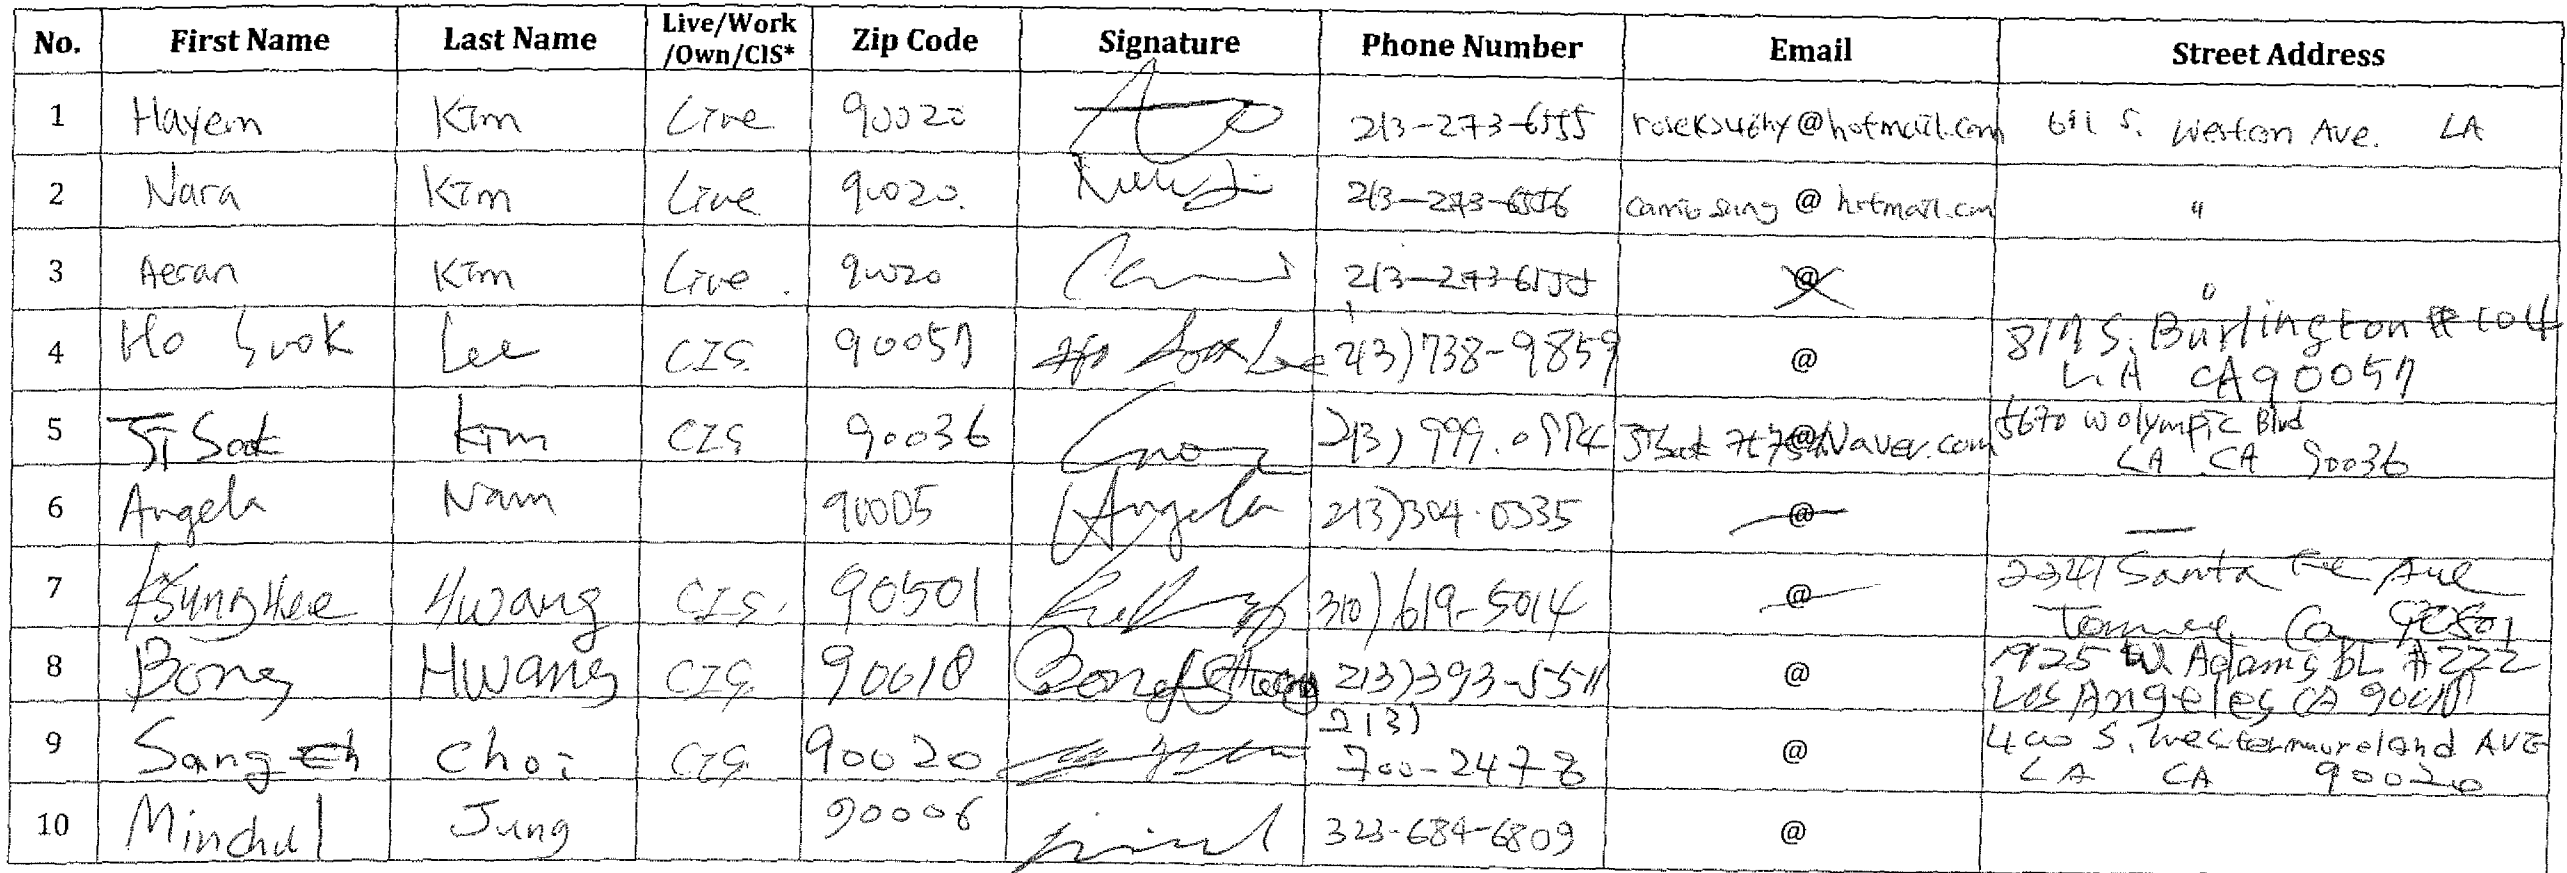 No. First Name Last Name Live/Work /Own/CIS* Zip Code Signature Phone Number Email Street Address
1 Hayem Kim Live 90020 213-273-6555 @hotmail.com 611 S. Western Ave. LA
2 Nara Kim Live 90020. 213-273-6556 @hotmail.com "
3 Aeran Kim Live. 90020 @ "
4 Ho Suok Lee CIS. 90057 213)738-9859 @ 817 S. Burlington #104
LA CA 90057
5 Ji Sook Kim CIS 90036 213) 999. @Naver.com 5670 W Olympic Blvd
LA CA 90036
6 Angela Nam 90005 Angela 213)304-0335 @ —
7 KyungHee Hwang CIS. 90501 310)619-5014 @ 2241 Santa Fe Ave
Torrance Ca 90501
8 Bong Hwang CIS. 90018 213)393-5511 @ 1925 W. Adams BL #222
Los Angeles CA 90018
9 Sang Choi CIS. 90020 213) 700-2478 @ 400 S. Westmoreland AVE
LA CA 90020
10 Minchul Jung 90006 323-684-6809 @